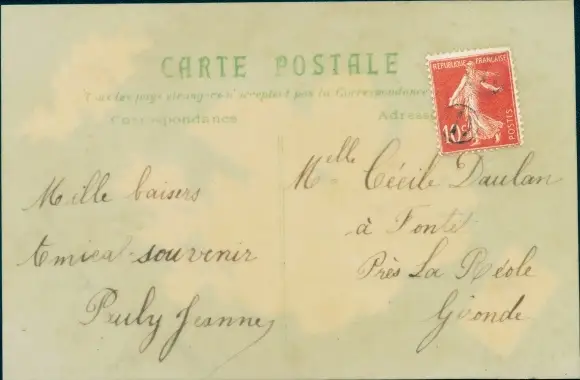 CARTE POSTALE
Tous les pays étrangers n'acceptent pas la Correspondance
Correspondance
Adresse
RÉPUBLIQUE FRANÇAISE
10c
POSTES
Melle Cécile Daulan
à Fonté
Près La Réole
Gironde
Mille baisers
Amical souvenir
Pauly Jeanne